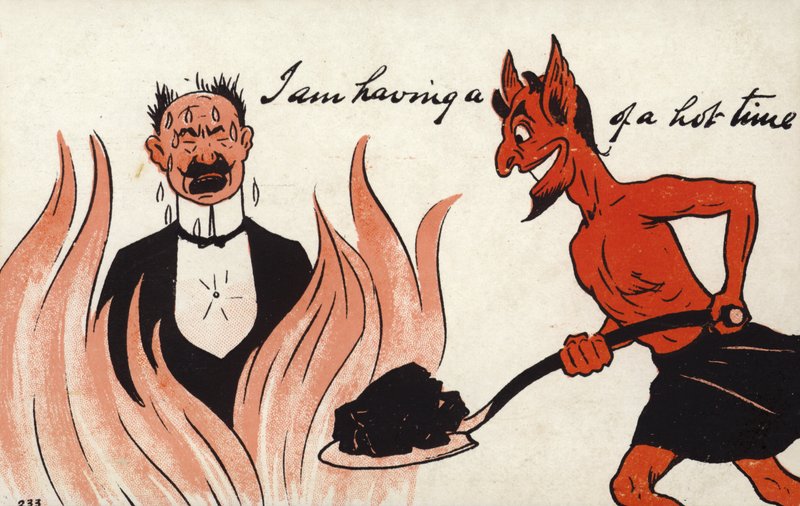 I am having a of a hot time
233